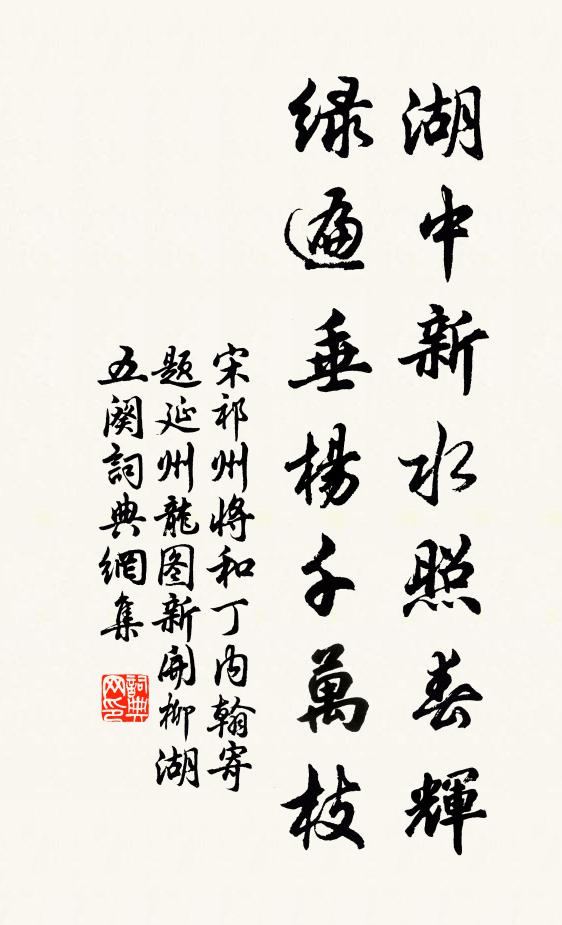 湖中新水照春輝
绿遍垂楊千萬枝
宋祁州將和丁内翰寄
题延州龍图新開柳湖
五阕詞典網集
詞典
网印